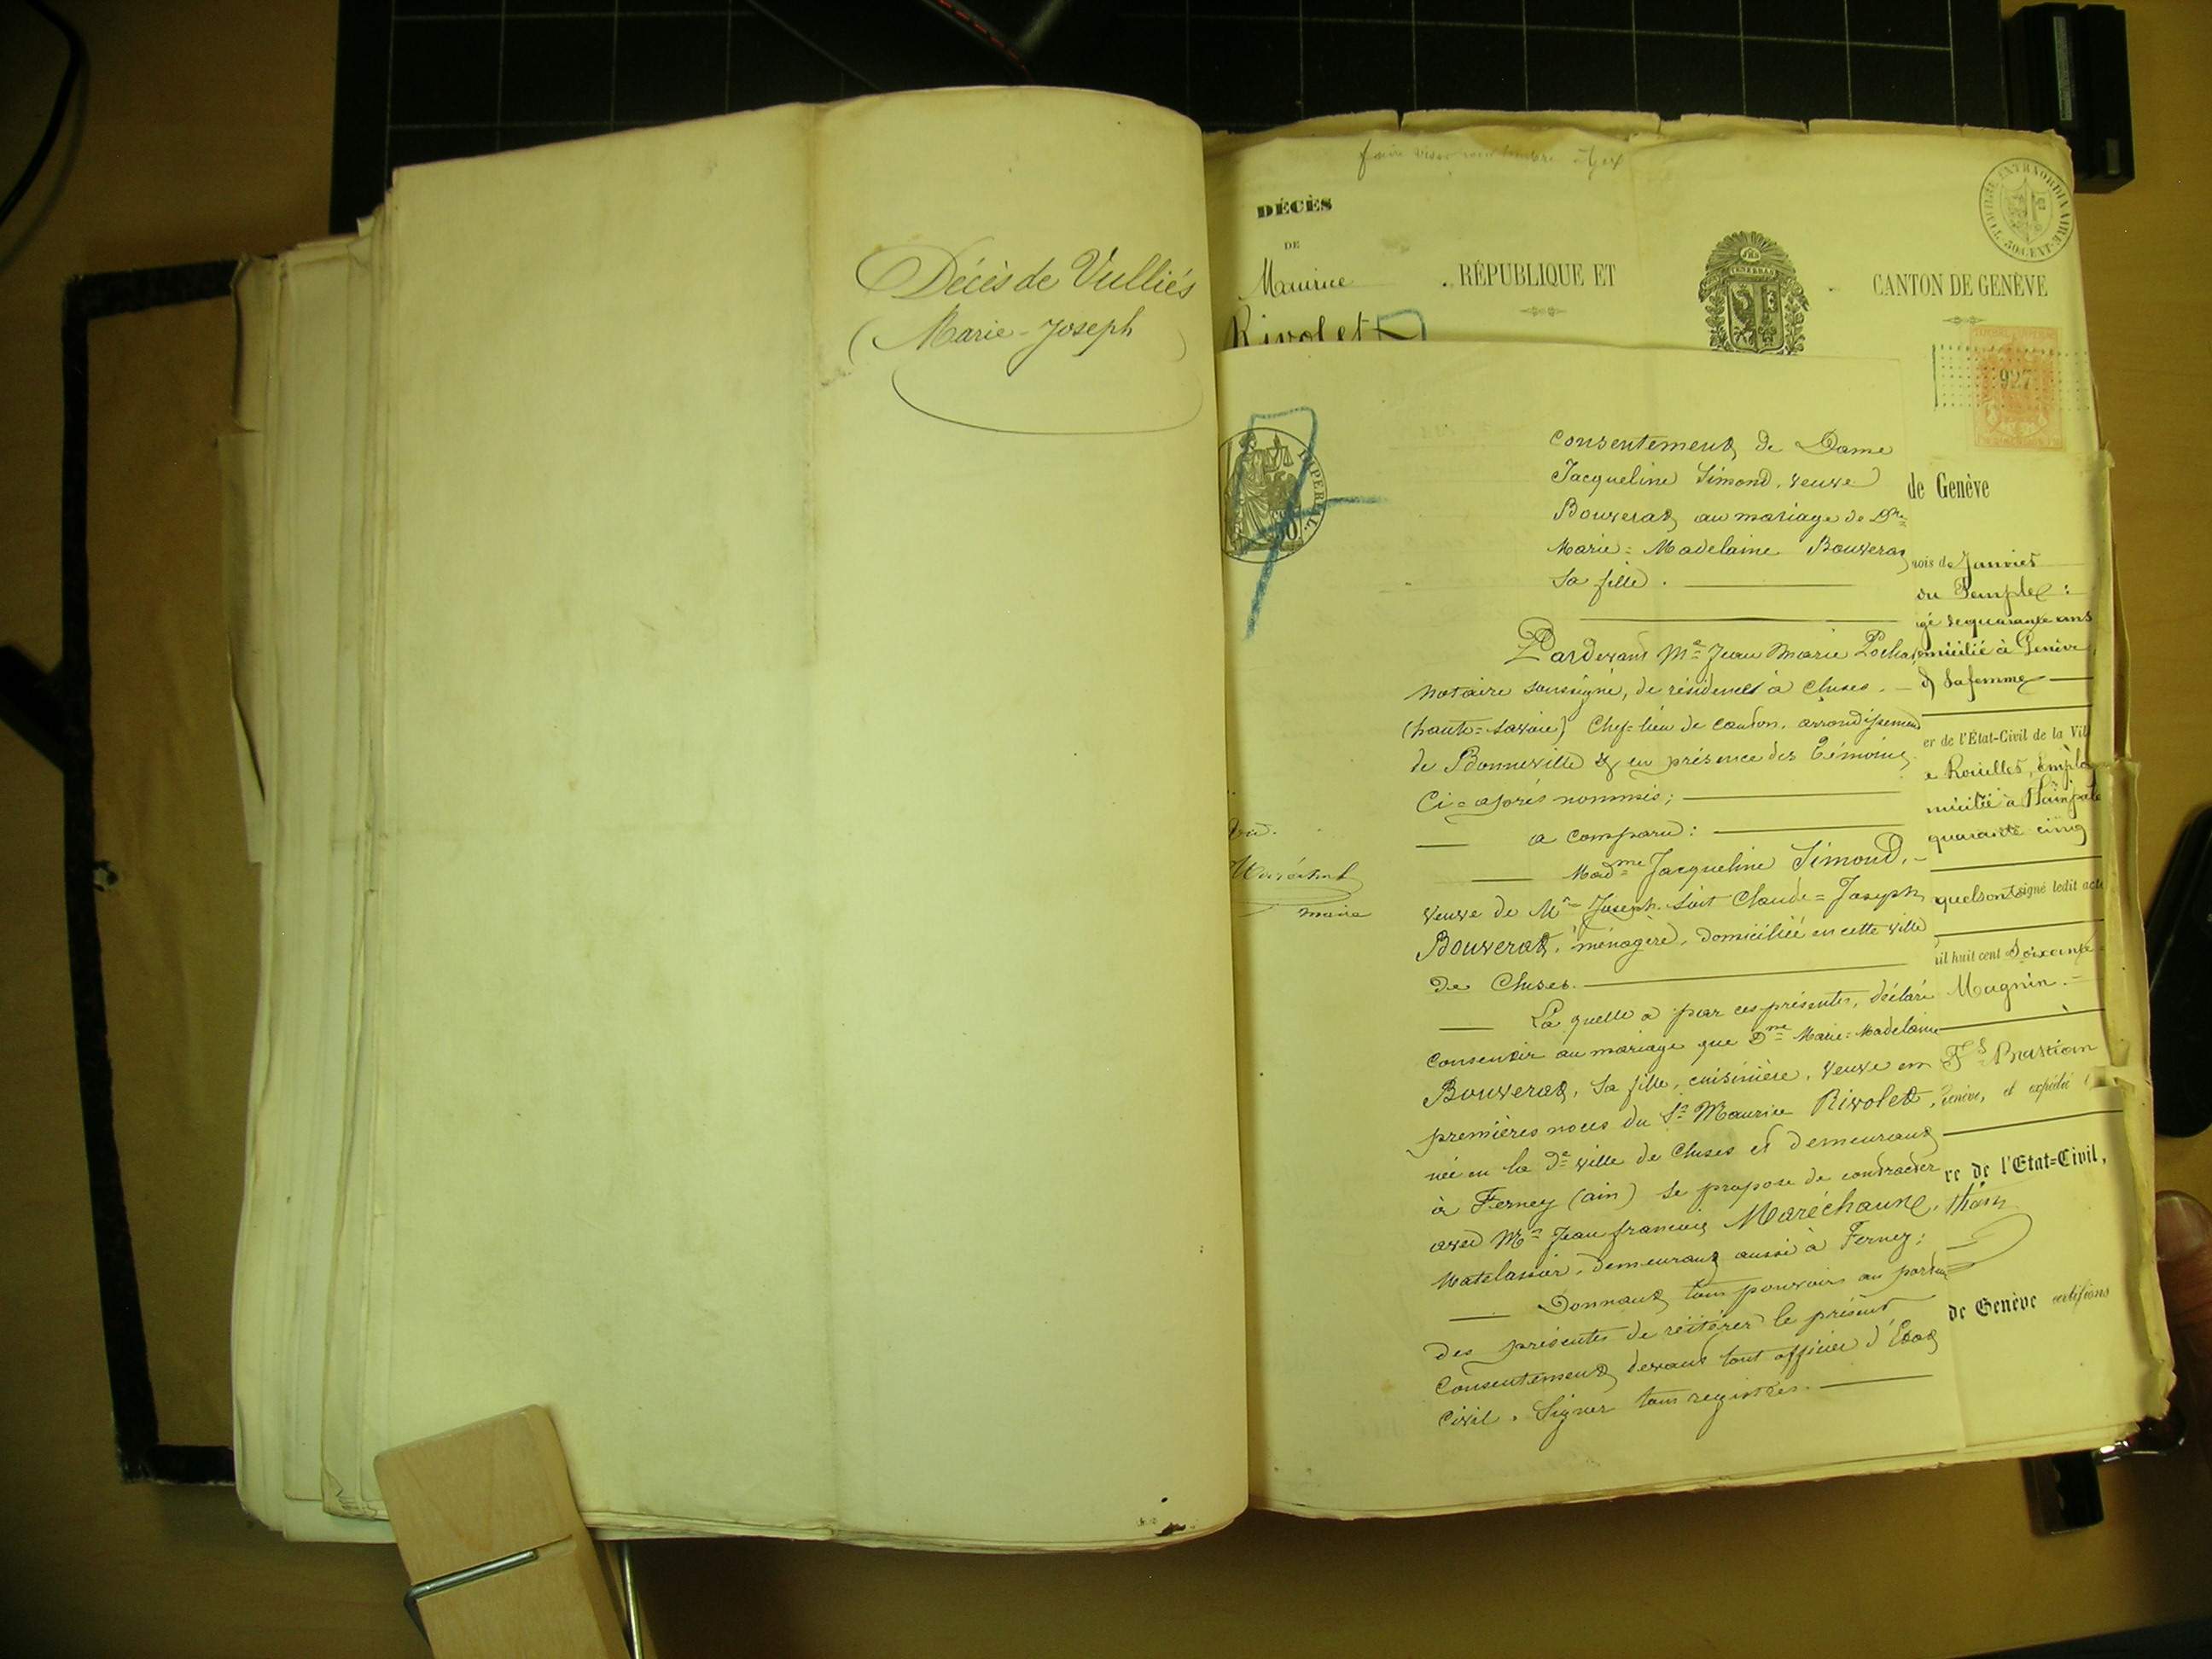 Décès de Vulliés
Marie-Joseph
DÉCÈS
DE
Maurice
Rivolet
RÉPUBLIQUE ET
CANTON DE GENÈVE
TIMBRE EXTRAORDINAIRE
50 CENT.
927
IMPÉRIAL
50
Consentement de Dame
Jacqueline Simond, veuve
Bouverat, au mariage de Dme
Marie=Madelaine Bouverat
sa fille.
Pardevant Me Jean Marie
notaire soussigné, de résidence à Cluses.
(haute=savoie) Chef=lieu de canton, arrondissement
de Bonneville & en présence des témoins
Ci=après nommés;
a comparu:
Madme Jacqueline Simond,
veuve de Mr Joseph soit Claude=Joseph
Bouverat, ménagère, domiciliée en cette ville
de Cluses.
La quelle a par ces présentes, déclaré
Consentir au mariage que Dme Marie=Madelaine
Bouverat, sa fille, cuisinière, veuve en
premières noces du Sr Maurice Rivolet,
née en la de ville de Cluses et demeurant
à Ferney (ain) se propose de contracter
avec Mr Jean françois Maréchaux,
Matelassier, demeurant aussi à Ferney;
Donnant tous pouvoirs au porteur
des présentes de réitérer le présent
Consentement devant tout officier d'Etat
Civil, Signer tous registres.
maire
de Genève
mois de Janvier
du Temple:
âgé de quarante ans
domicilié à Genève
& sa femme
er de l'État-Civil de la Vil
micilié à Plainpalais
quarante cinq
quels ont signé ledit acte
mil huit cent soixante
Magnin.
Fs Bastian
Genève, et expédié
re de l'Etat=Civil,
de Genève certifions